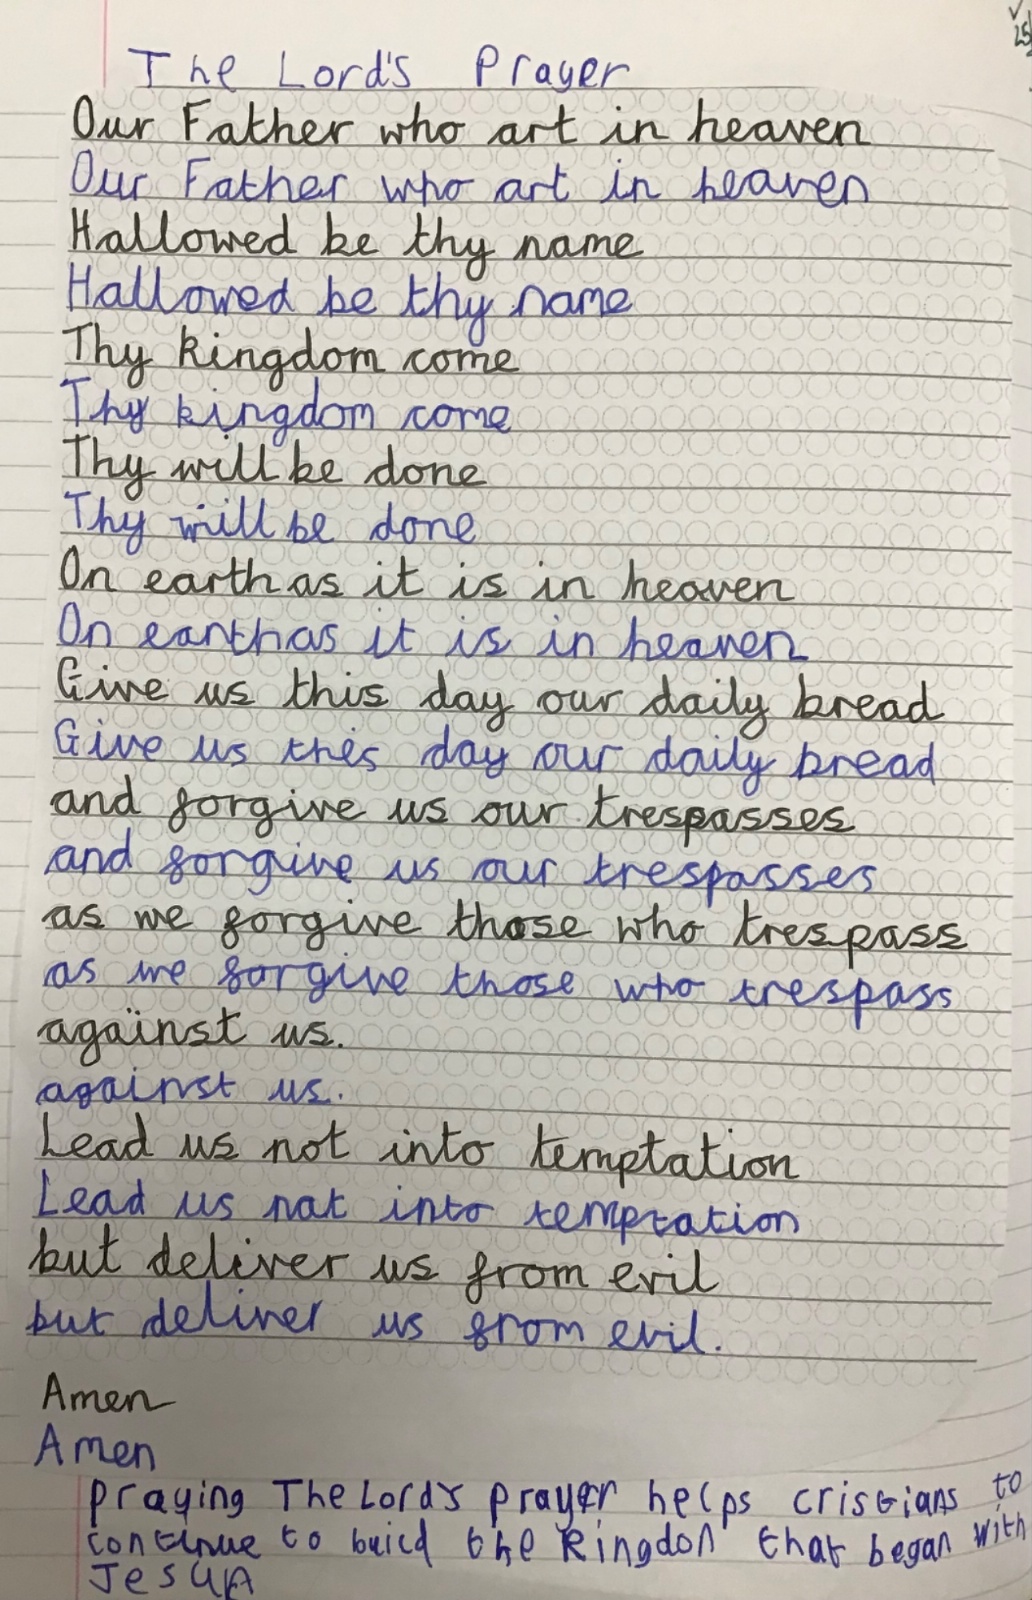 The Lord's Prayer
Our Father who art in heaven
Our Father who art in heaven
Hallowed be thy name
Hallowed be thy name
Thy kingdom come
Thy kingdom come
Thy will be done
Thy will be done
On earth as it is in heaven
On earth as it is in heaven
Give us this day our daily bread
Give us this day our daily bread
and forgive us our trespasses
and forgive us our trespasses
as we forgive those who trespass
as we forgive those who trespass
against us.
against us.
Lead us not into temptation
Lead us not into temptation
but deliver us from evil
but deliver us from evil.
Amen
Amen
praying The Lord's prayer helps cristians to
continue to build the kingdon that began with